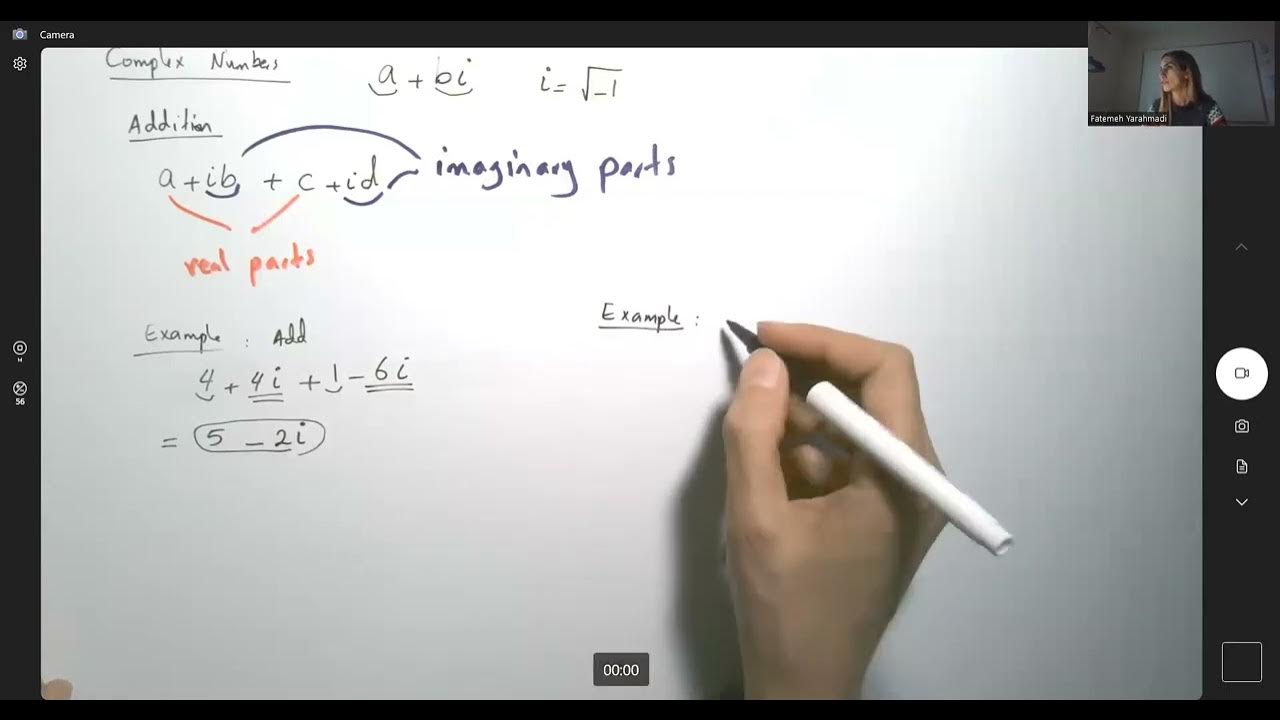 Camera
Complex Numbers
a + bi i = √-1
Fatemeh Yarahmadi
Addition
a + ib + c + id imaginary parts
real parts
Example : Add
Example :
4 + 4i + 1 - 6i
= 5 - 2i
56
00:00